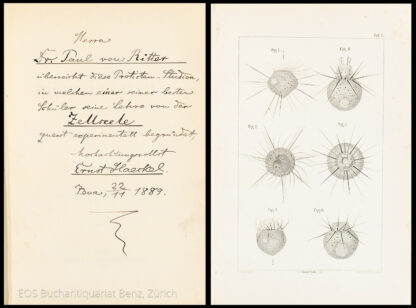 Herrn
Dr. Paul von Ritter
überreicht diese Protisten-Studien,
in welchen einer seiner besten
Schüler seine Lehre von der
Zellseele
zuerst experimentell begründet
hochachtungsvollst
Ernst Haeckel.
Jena, 22/11 1889.
EOS Buchantiquariat Benz, Zürich
Taf. I.
Fig. 1.
Fig. 2.
Fig. 3.